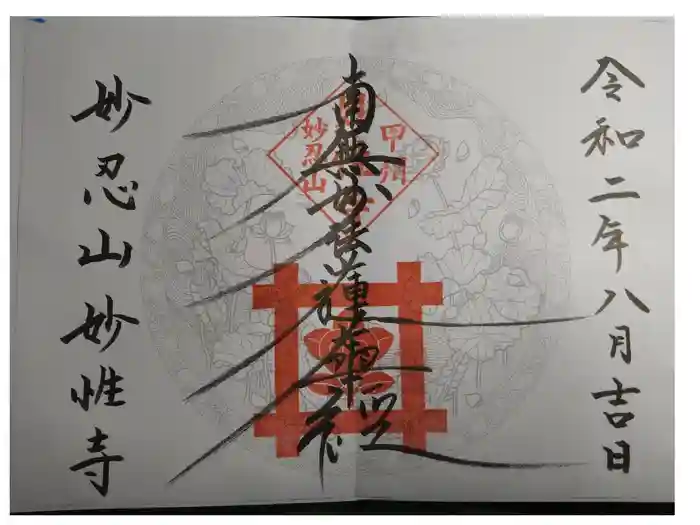 令和二年八月吉日
南無妙法蓮華経
甲州
妙忍山
妙忍山妙性寺